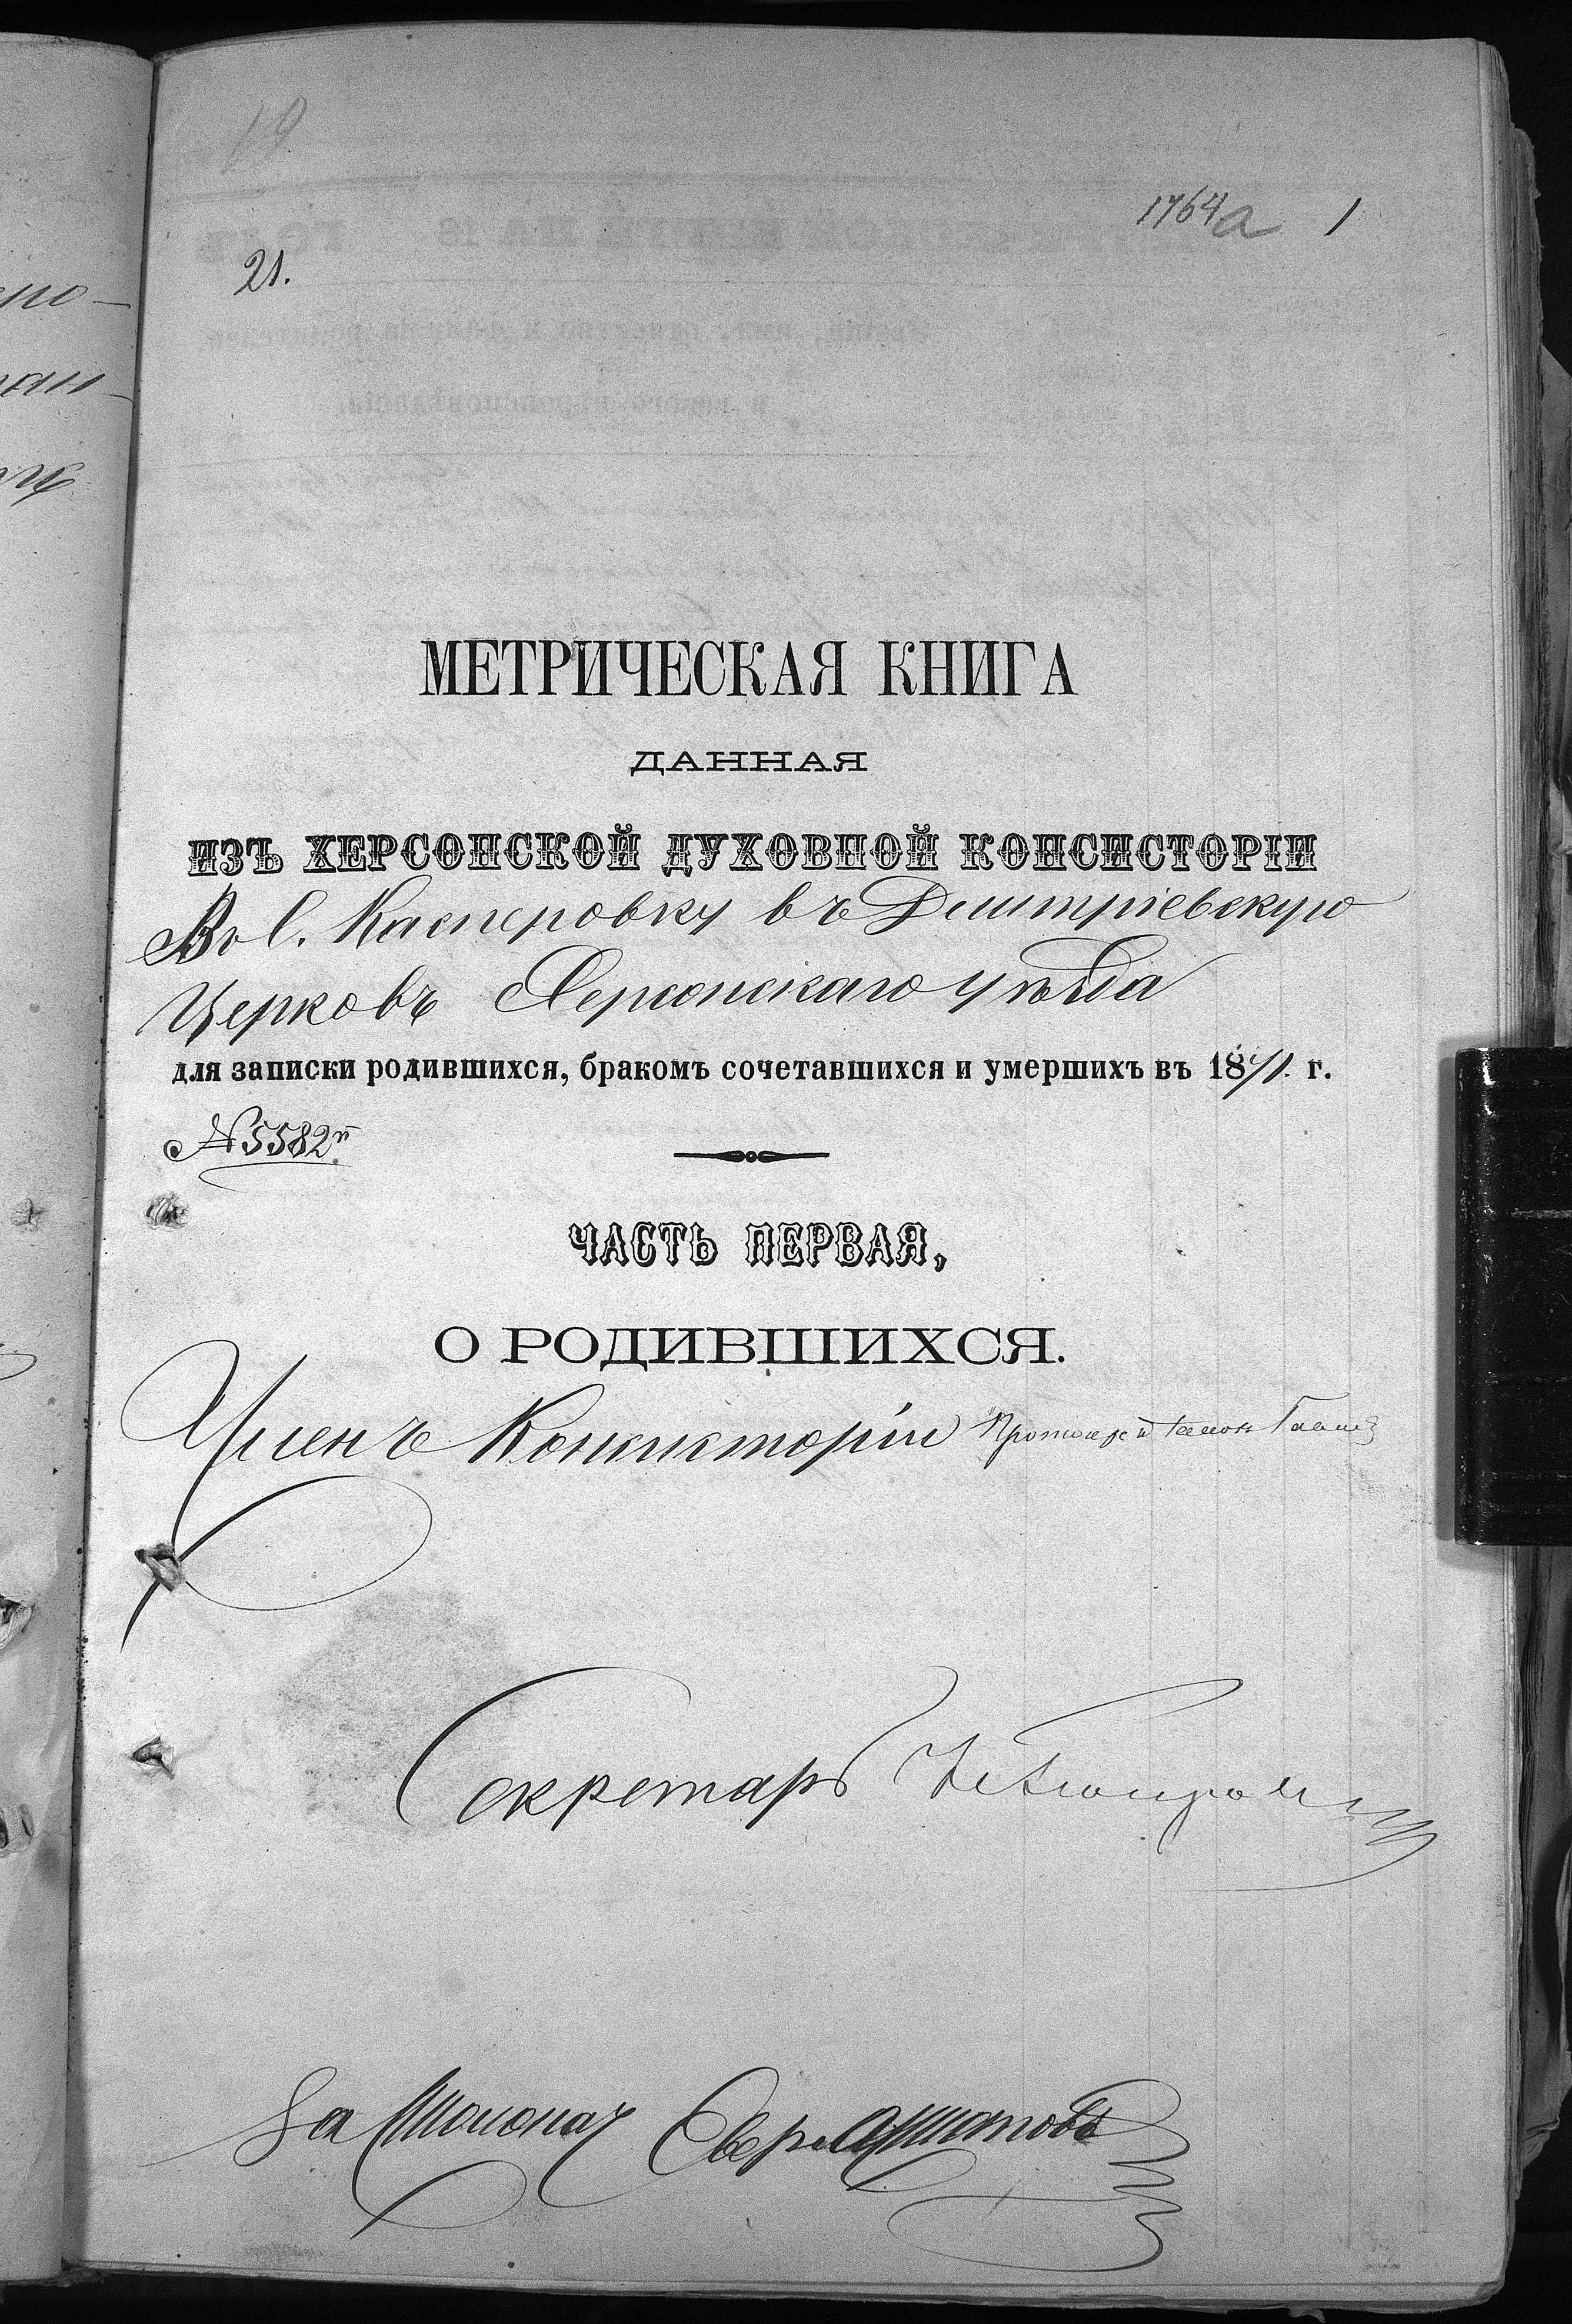 19
1764а 1
21.
МЕТРИЧЕСКАЯ КНИГА
ДАННАЯ
ИЗЪ ХЕРСОНСКОЙ ДУХОВНОЙ КОНСИСТОРІИ
Въ С. Касперовку въ Дмитріевскую
Церковь Херсонскаго уѣзда
для записки родившихся, бракомъ сочетавшихся и умершихъ въ 1871. г.
№ 5582й
ЧАСТЬ ПЕРВАЯ,
О РОДИВШИХСЯ.
Членъ Консисторіи Протоіерей
Секретарь
За Столонач